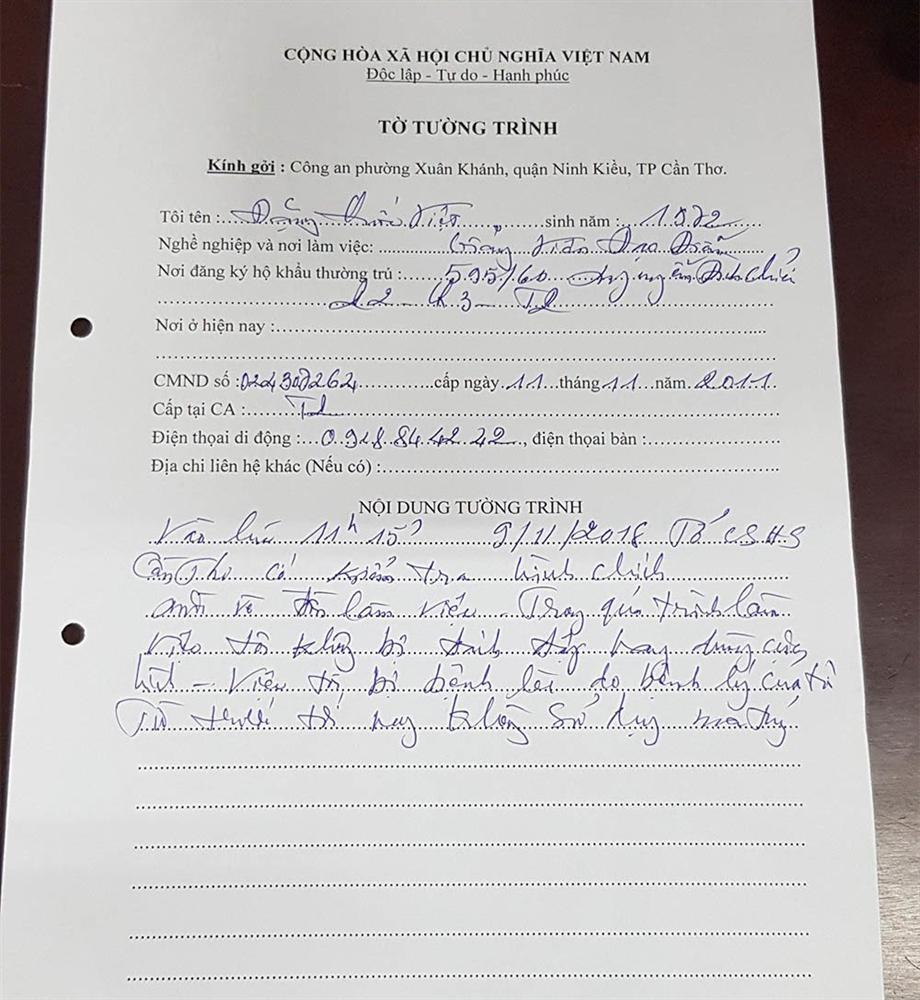 CỘNG HÒA XÃ HỘI CHỦ NGHĨA VIỆT NAM
Độc lập - Tự do - Hạnh phúc
TỜ TƯỜNG TRÌNH
Kính gởi : Công an phường Xuân Khánh, quận Ninh Kiều, TP Cần Thơ.
Tôi tên : Đặng Quốc Việt sinh năm : 1972
Nghề nghiệp và nơi làm việc: Giảng viên Đạo Diễn
Nơi đăng ký hộ khẩu thường trú : 595/60 Nguyễn Đình Chiểu
P2 - Q3 -
Nơi ở hiện nay :
CMND số : 024307264 cấp ngày 11 tháng 11 năm 2011
Cấp tại CA :
Điện thoại di động : 0.918.84.42.42, điện thoại bàn :
Địa chỉ liên hệ khác (Nếu có) :
NỘI DUNG TƯỜNG TRÌNH
Vào lúc 11h 15' 9/11/2018 Tổ CSHS
Cần Thơ có kiểm tra hành chính
mời về đồn làm việc. Trong quá trình làm
việc tôi không bị đánh đập hay dùng cực
hình - Việc tôi bị bệnh là do bệnh lý của tôi
Từ trước tới nay không sử dụng ma túy